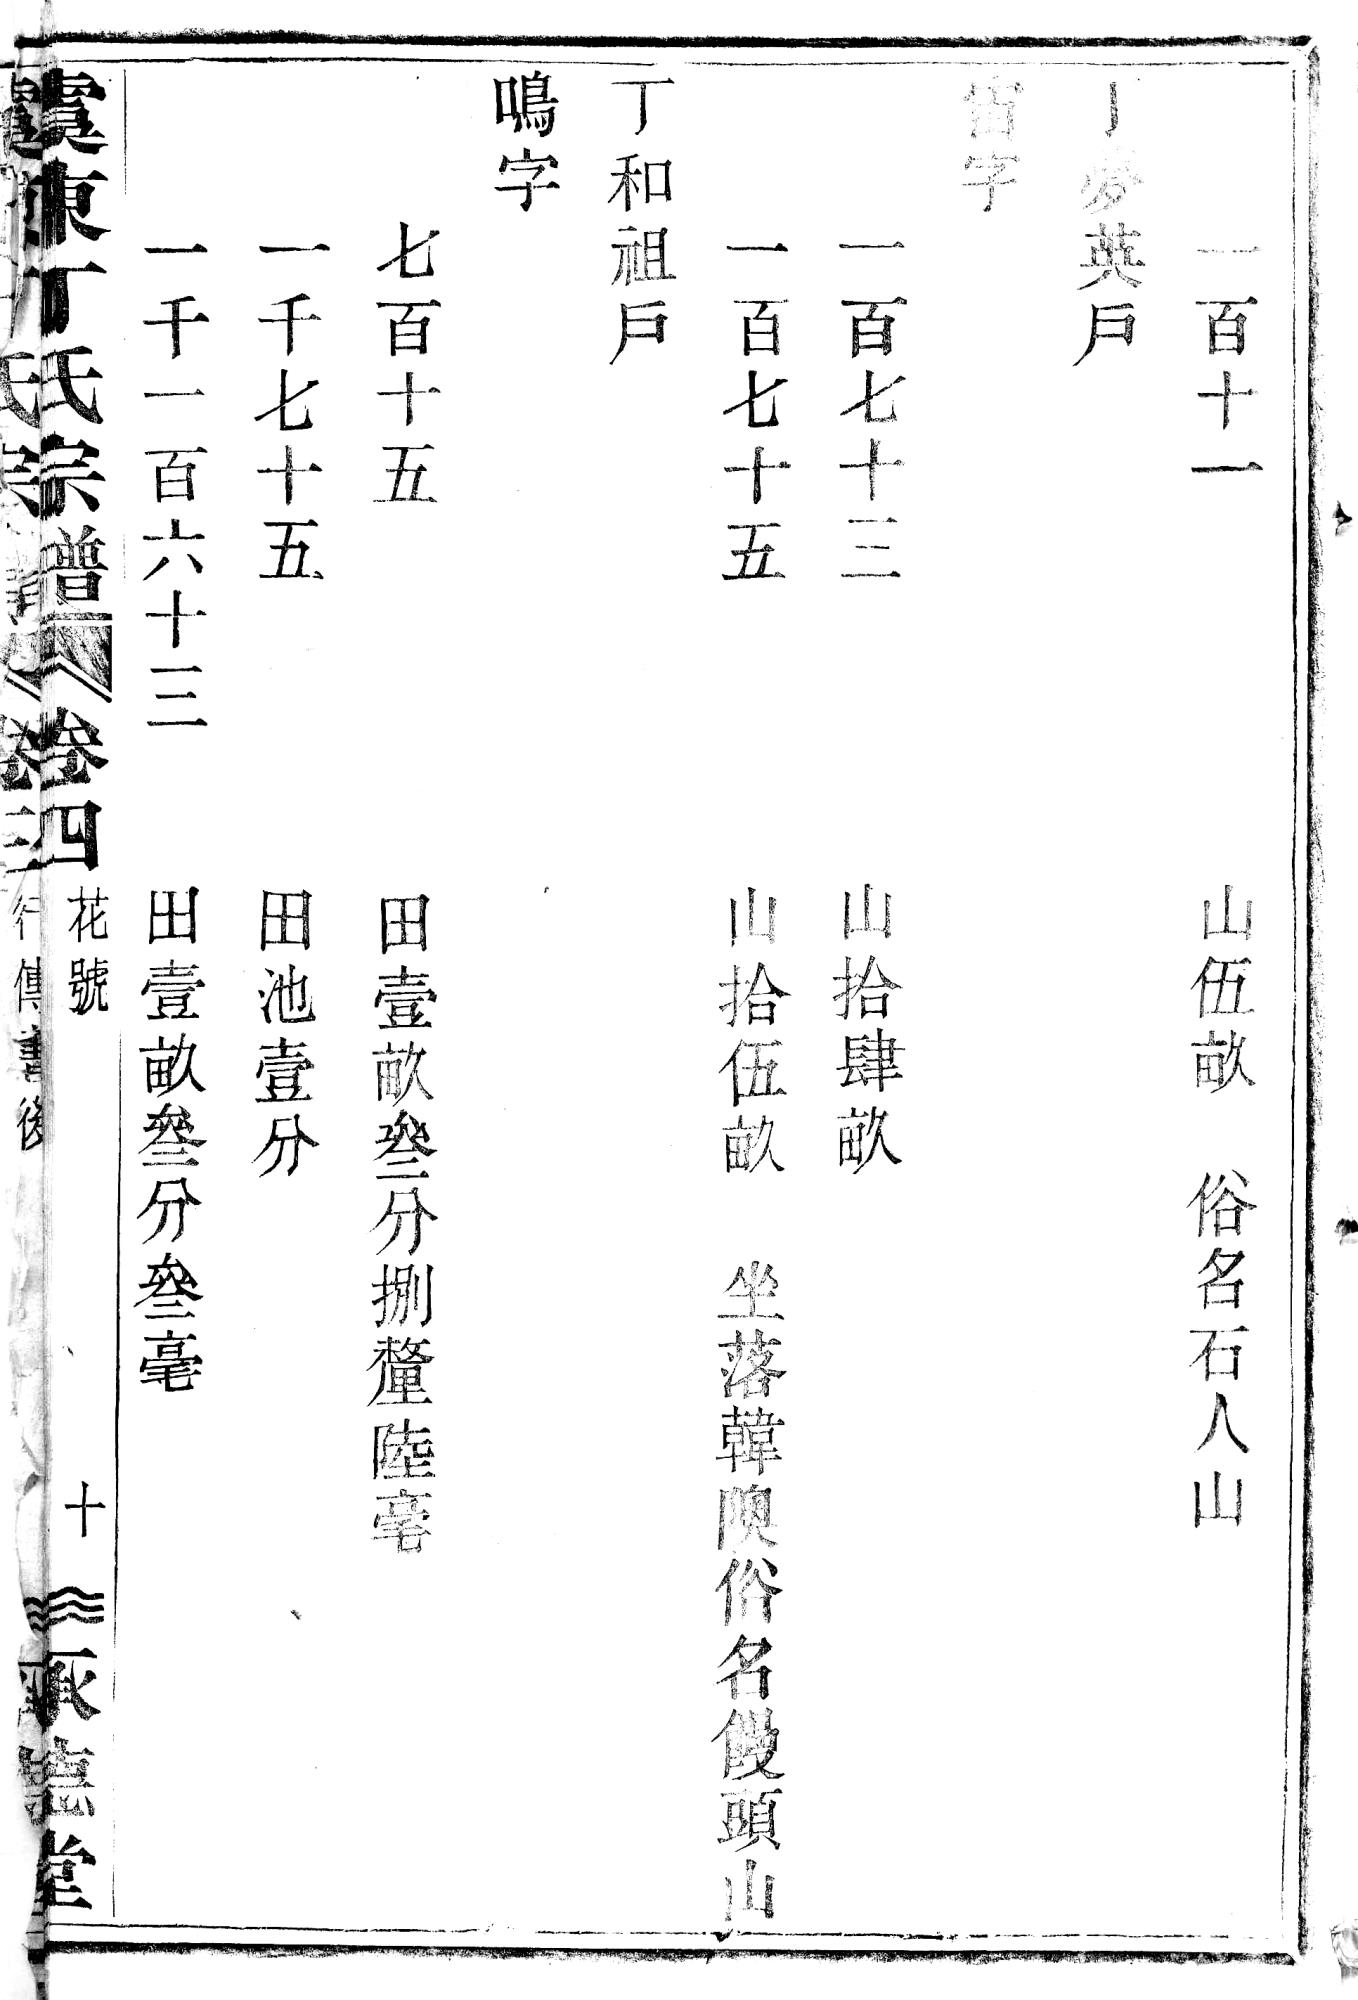 一百十一　山伍畝　俗名石人山
丁夢英戶
宙字
一百七十三　山拾肆畝
一百七十五　山拾伍畝　坐落韓隩俗名饅頭山
丁和祖戶
鳴字
七百十五　田壹畝叄分捌釐陸毫
一千七十五　田池壹分
一千一百六十三　田壹畝叄分叄毫
虞東丁氏宗譜　卷四　花號　十　承德堂